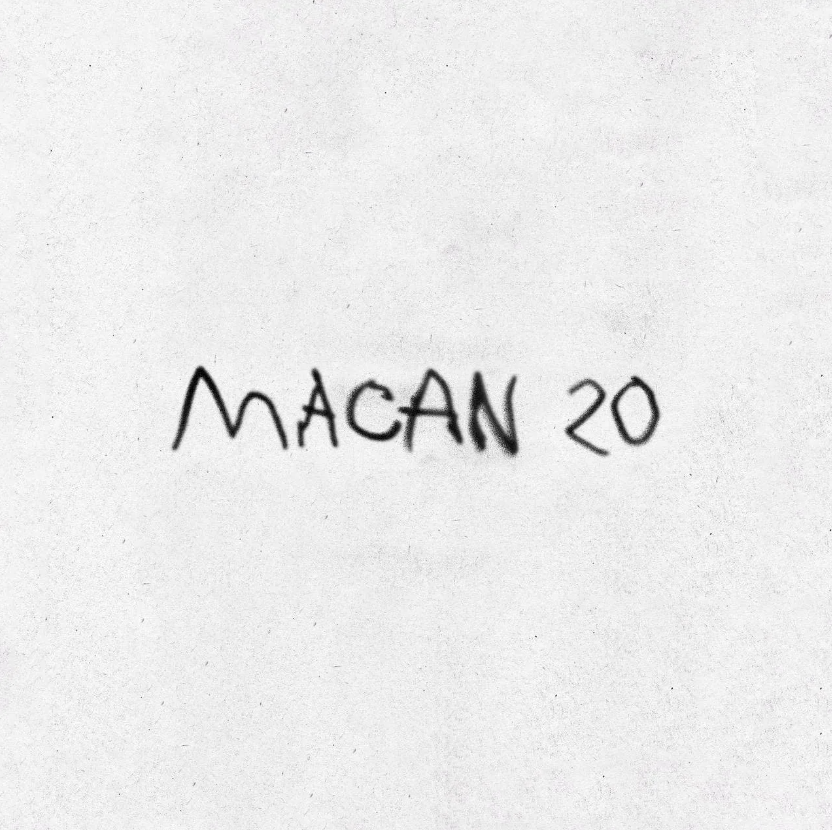 MACAN 20